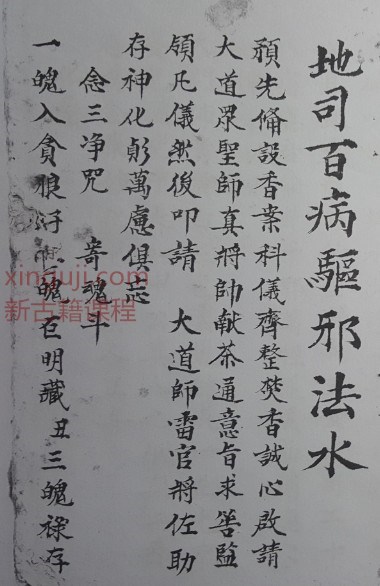 地司百病驅邪法水
預先俻設香案科儀齊整焚香誠心啟請
大道眾聖師真將帥献茶通意旨求善監
領凡儀然後叩請 大道師雷官將佐助
存神化躬萬慮俱忘
念三净咒 寄魂斗
一魄入貪狼 魄巨明藏 丑三魄禄存
xinguji.com
新古籍课程